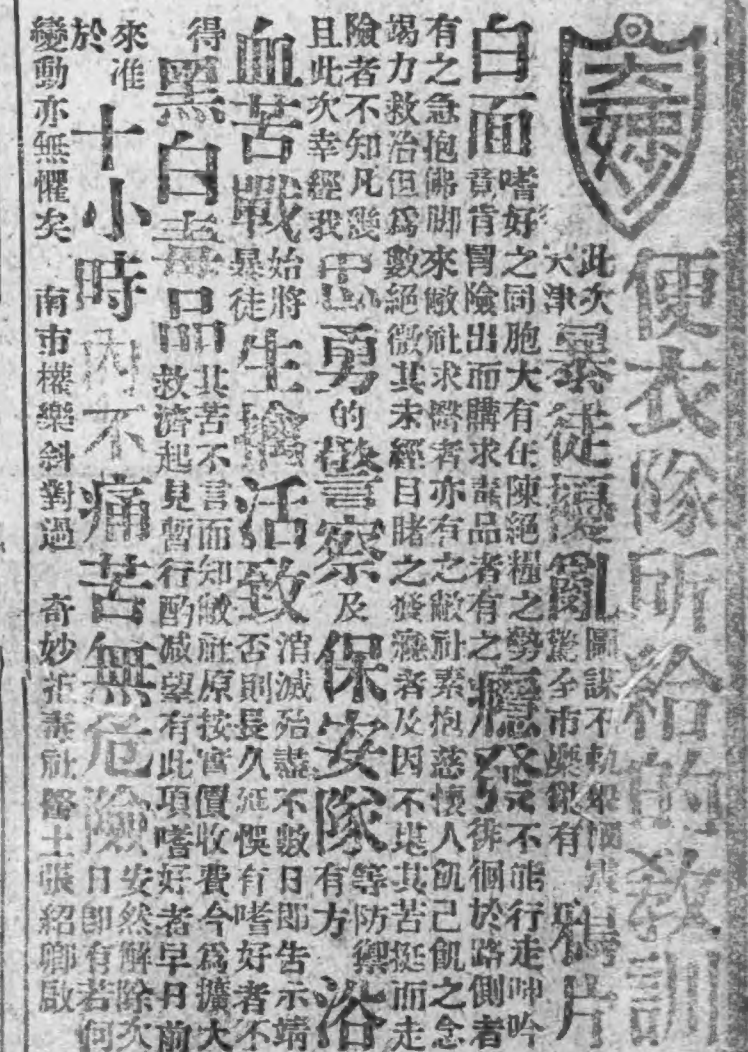 奇妙
便衣隊所給的教訓
此次
天津
暴徒擾亂
圖謀不軌
驚全市
有
鴉片
白面
嗜好之同胞大有在陳絕糧之勢
竟肯冒險出而購求毒品者有之
癮發
不能行走呻吟
徘徊於路側者
有之急抱佛脚來敝社求醫者亦有之敝社素抱慈懷人飢己飢之念
竭力救治但爲數絕微其未經目睹之發癮者及因不堪其苦挺而走
險者不知凡幾
且此次幸經我
忠勇的警察及保安隊
等防禦
有方
浴
血苦戰
始將
暴徒
生擒活致
消滅殆盡不數日即告示靖
否則長久延悞有嗜好者不
得黑白毒品
其苦不言而知敝社原按實價收費今爲擴大
救濟起見暫行酌减望有此項嗜好者早日前
來准
於
十小時內不痛苦無危險
安然解除次
日即有若何
變動亦無懼矣 南市權樂斜對過 奇妙拒毒社醫士張紹鄉啟